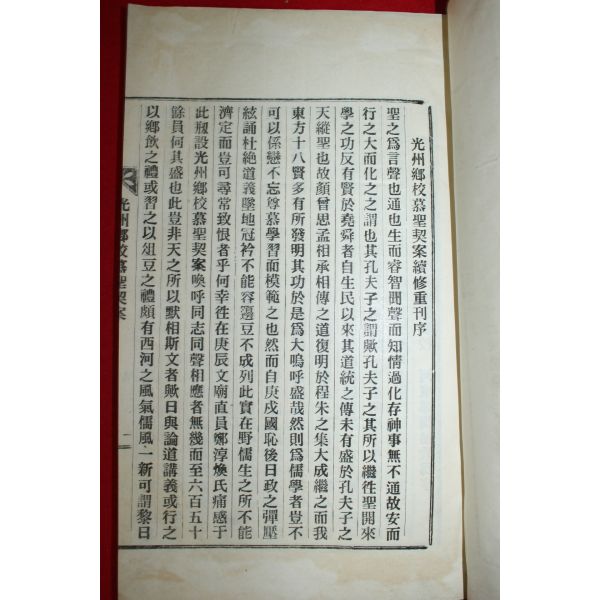 光州鄕校慕聖契案續修重刊序
聖之爲言聲也通也生而睿智聞聲而知情過化存神事無不通故安而
行之大而化之之謂也其孔夫子之謂歟孔夫子之其所以繼徃聖開來
學之功反有賢於堯舜者自生民以來其道統之傳未有盛於孔夫子之
天縱聖也故顔曾思孟相承相傳之道復明於程朱之集大成繼之而我
東方十八賢多有所發明其功於是爲大嗚呼盛哉然則爲儒學者豈不
可以係戀不忘尊慕學習而模範之也然而自庚戌國恥後日政之彈壓
絃誦杜絶道義墜地冠衿不能容籩豆不成列此實在野儒生之所不能
濟定而豈可尋常致恨者乎何幸徃在庚辰文廟直員鄭淳煥氏痛感于
此刱設光州鄕校慕聖契案喚呼同志同聲相應者無幾而至六百五十
餘員何其盛也此豈非天之所以默相斯文者歟日與論道講義或行之
以鄕飮之禮或習之以俎豆之禮頗有西河之風氣儒風一新可謂黎日
光州鄕校慕聖契案
一